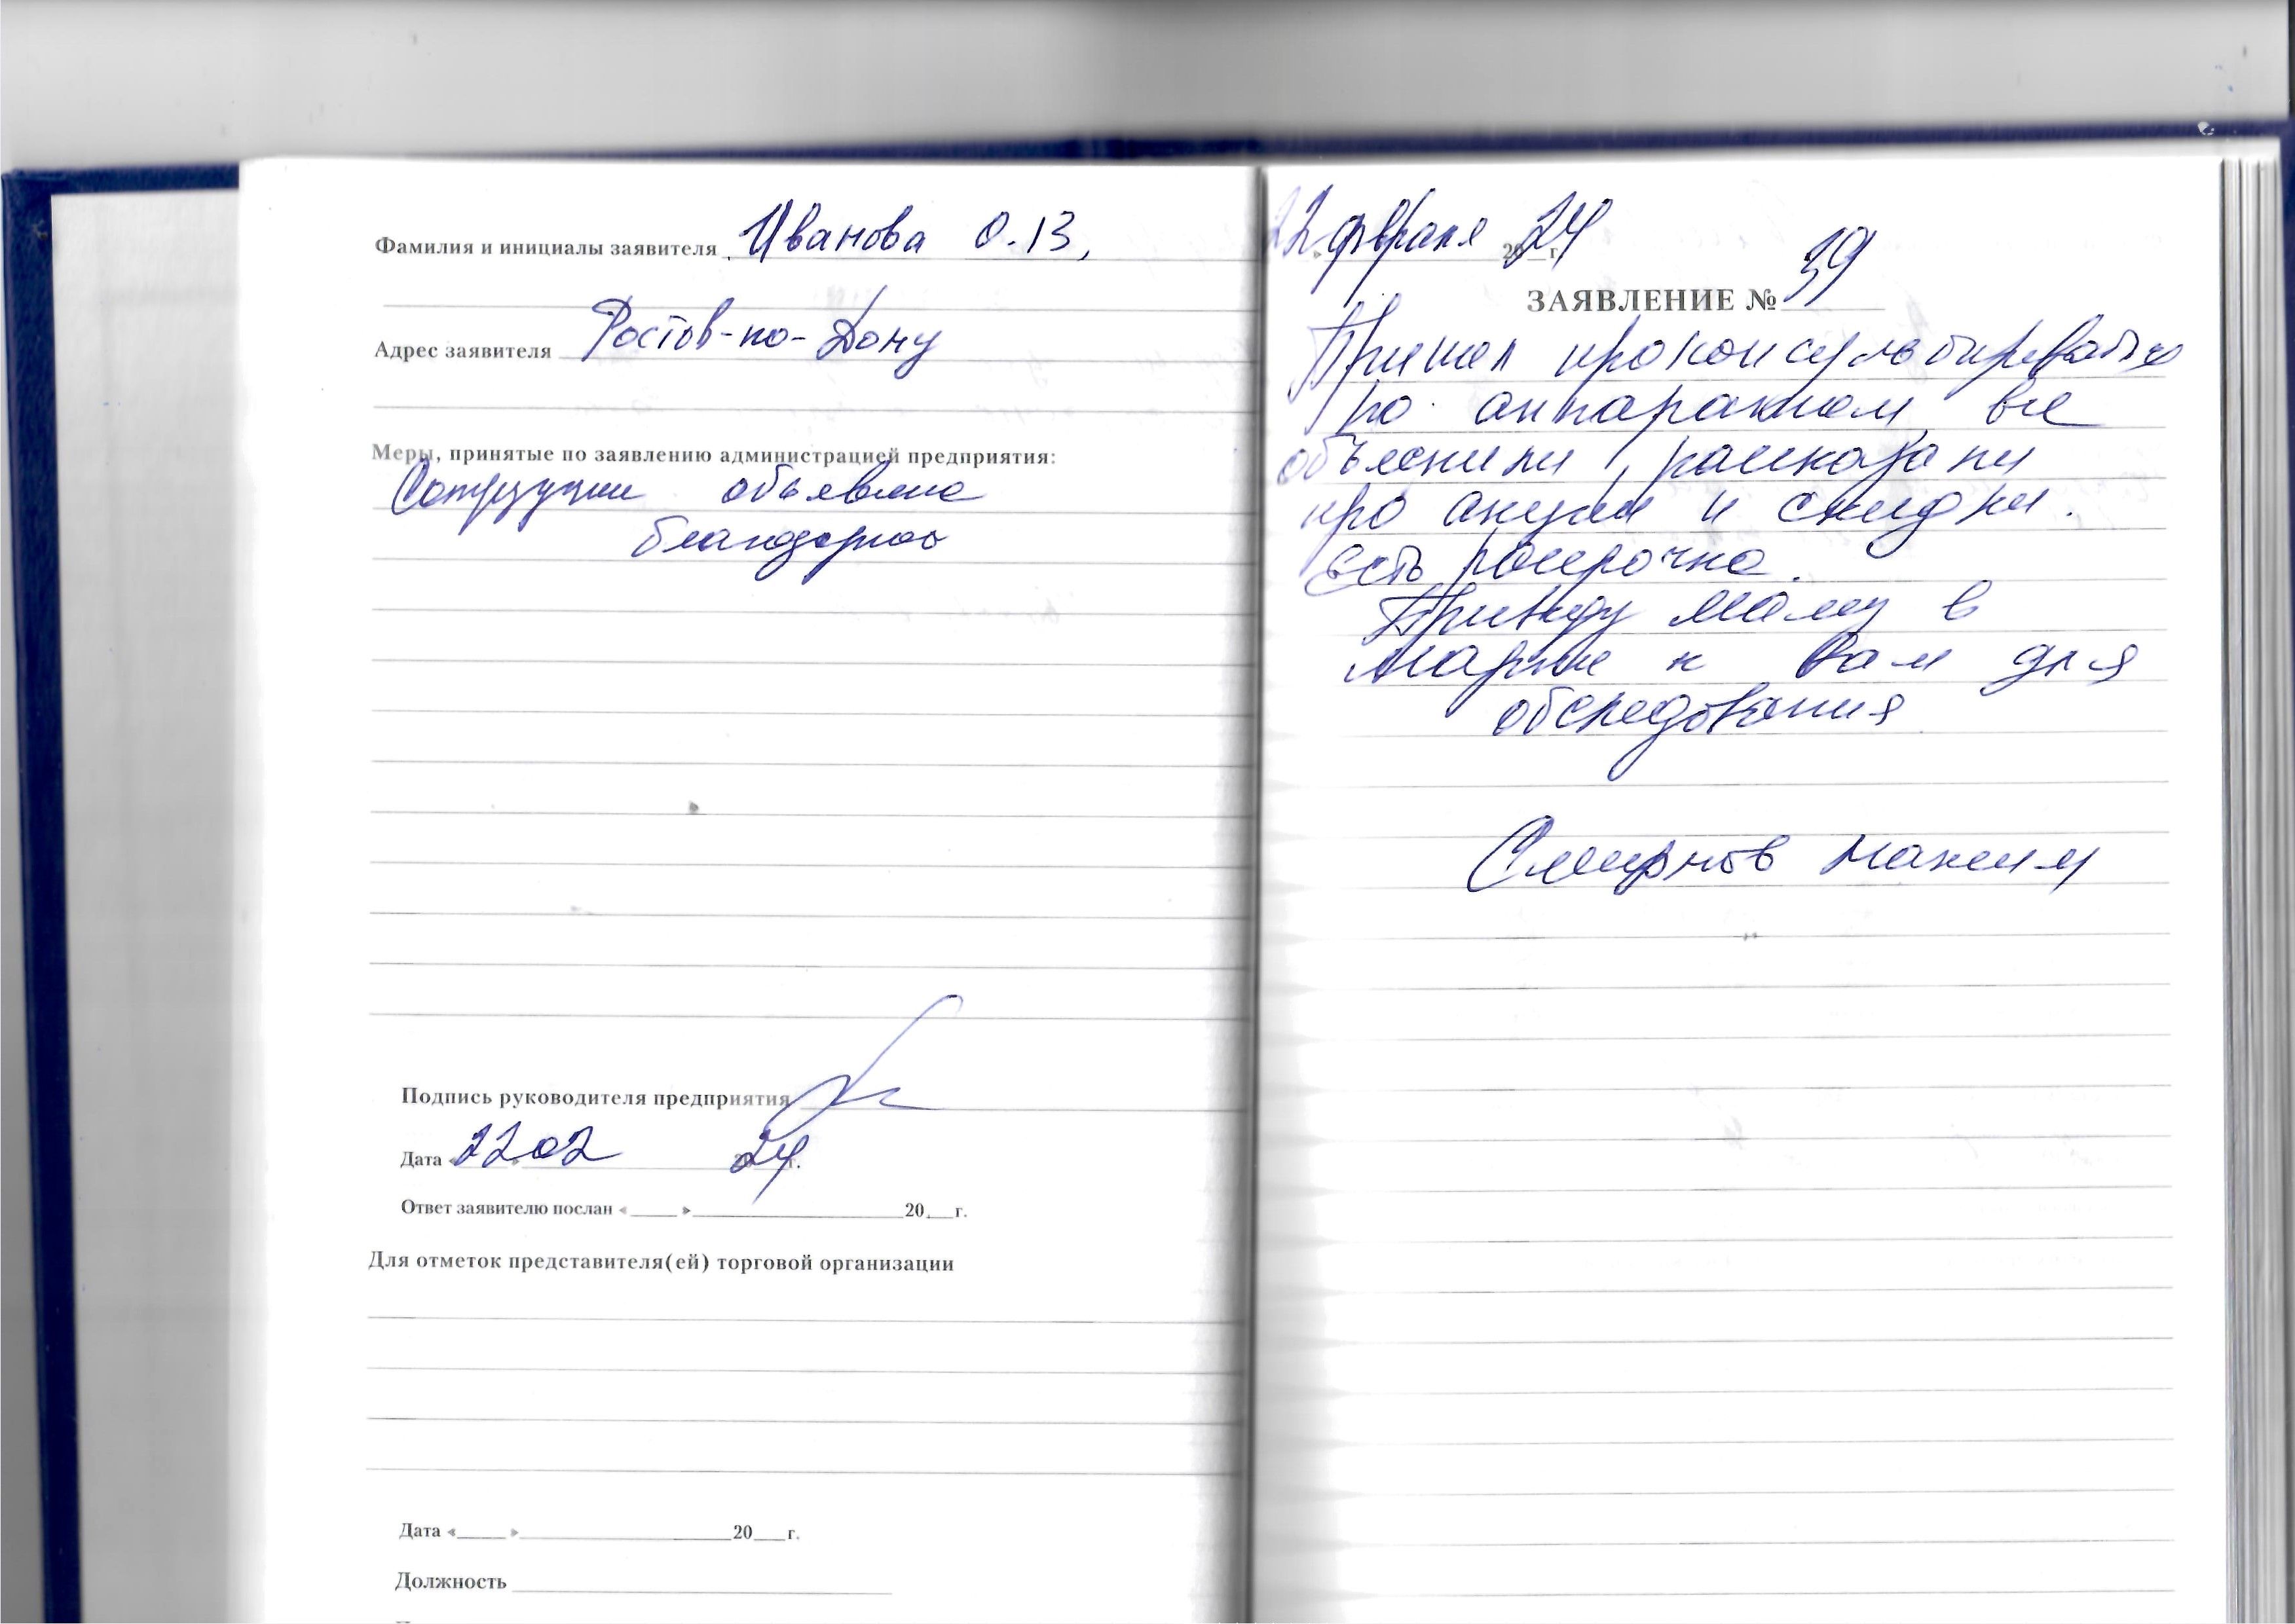 Фамилия и инициалы заявителя Иванова О.В,
Адрес заявителя Ростов-на-Дону
Меры, принятые по заявлению администрацией предприятия:
Сотруднии объявлена
благодарнос
Подпись руководителя предприятия
Дата «22 02 24 г.
Ответ заявителю послан « » 20 г.
Для отметок представителя(ей) торговой организации
Дата « » 20 г.
Должность
22 февраля 2024 г
ЗАЯВЛЕНИЕ № 39
Пришел проконсультироваться
по аппаратам, все
объяснили, рассказали
про акции и скидки.
Есть рассрочка.
Приведу маму в
марте к Вам для
обследования
Смирнов Максим